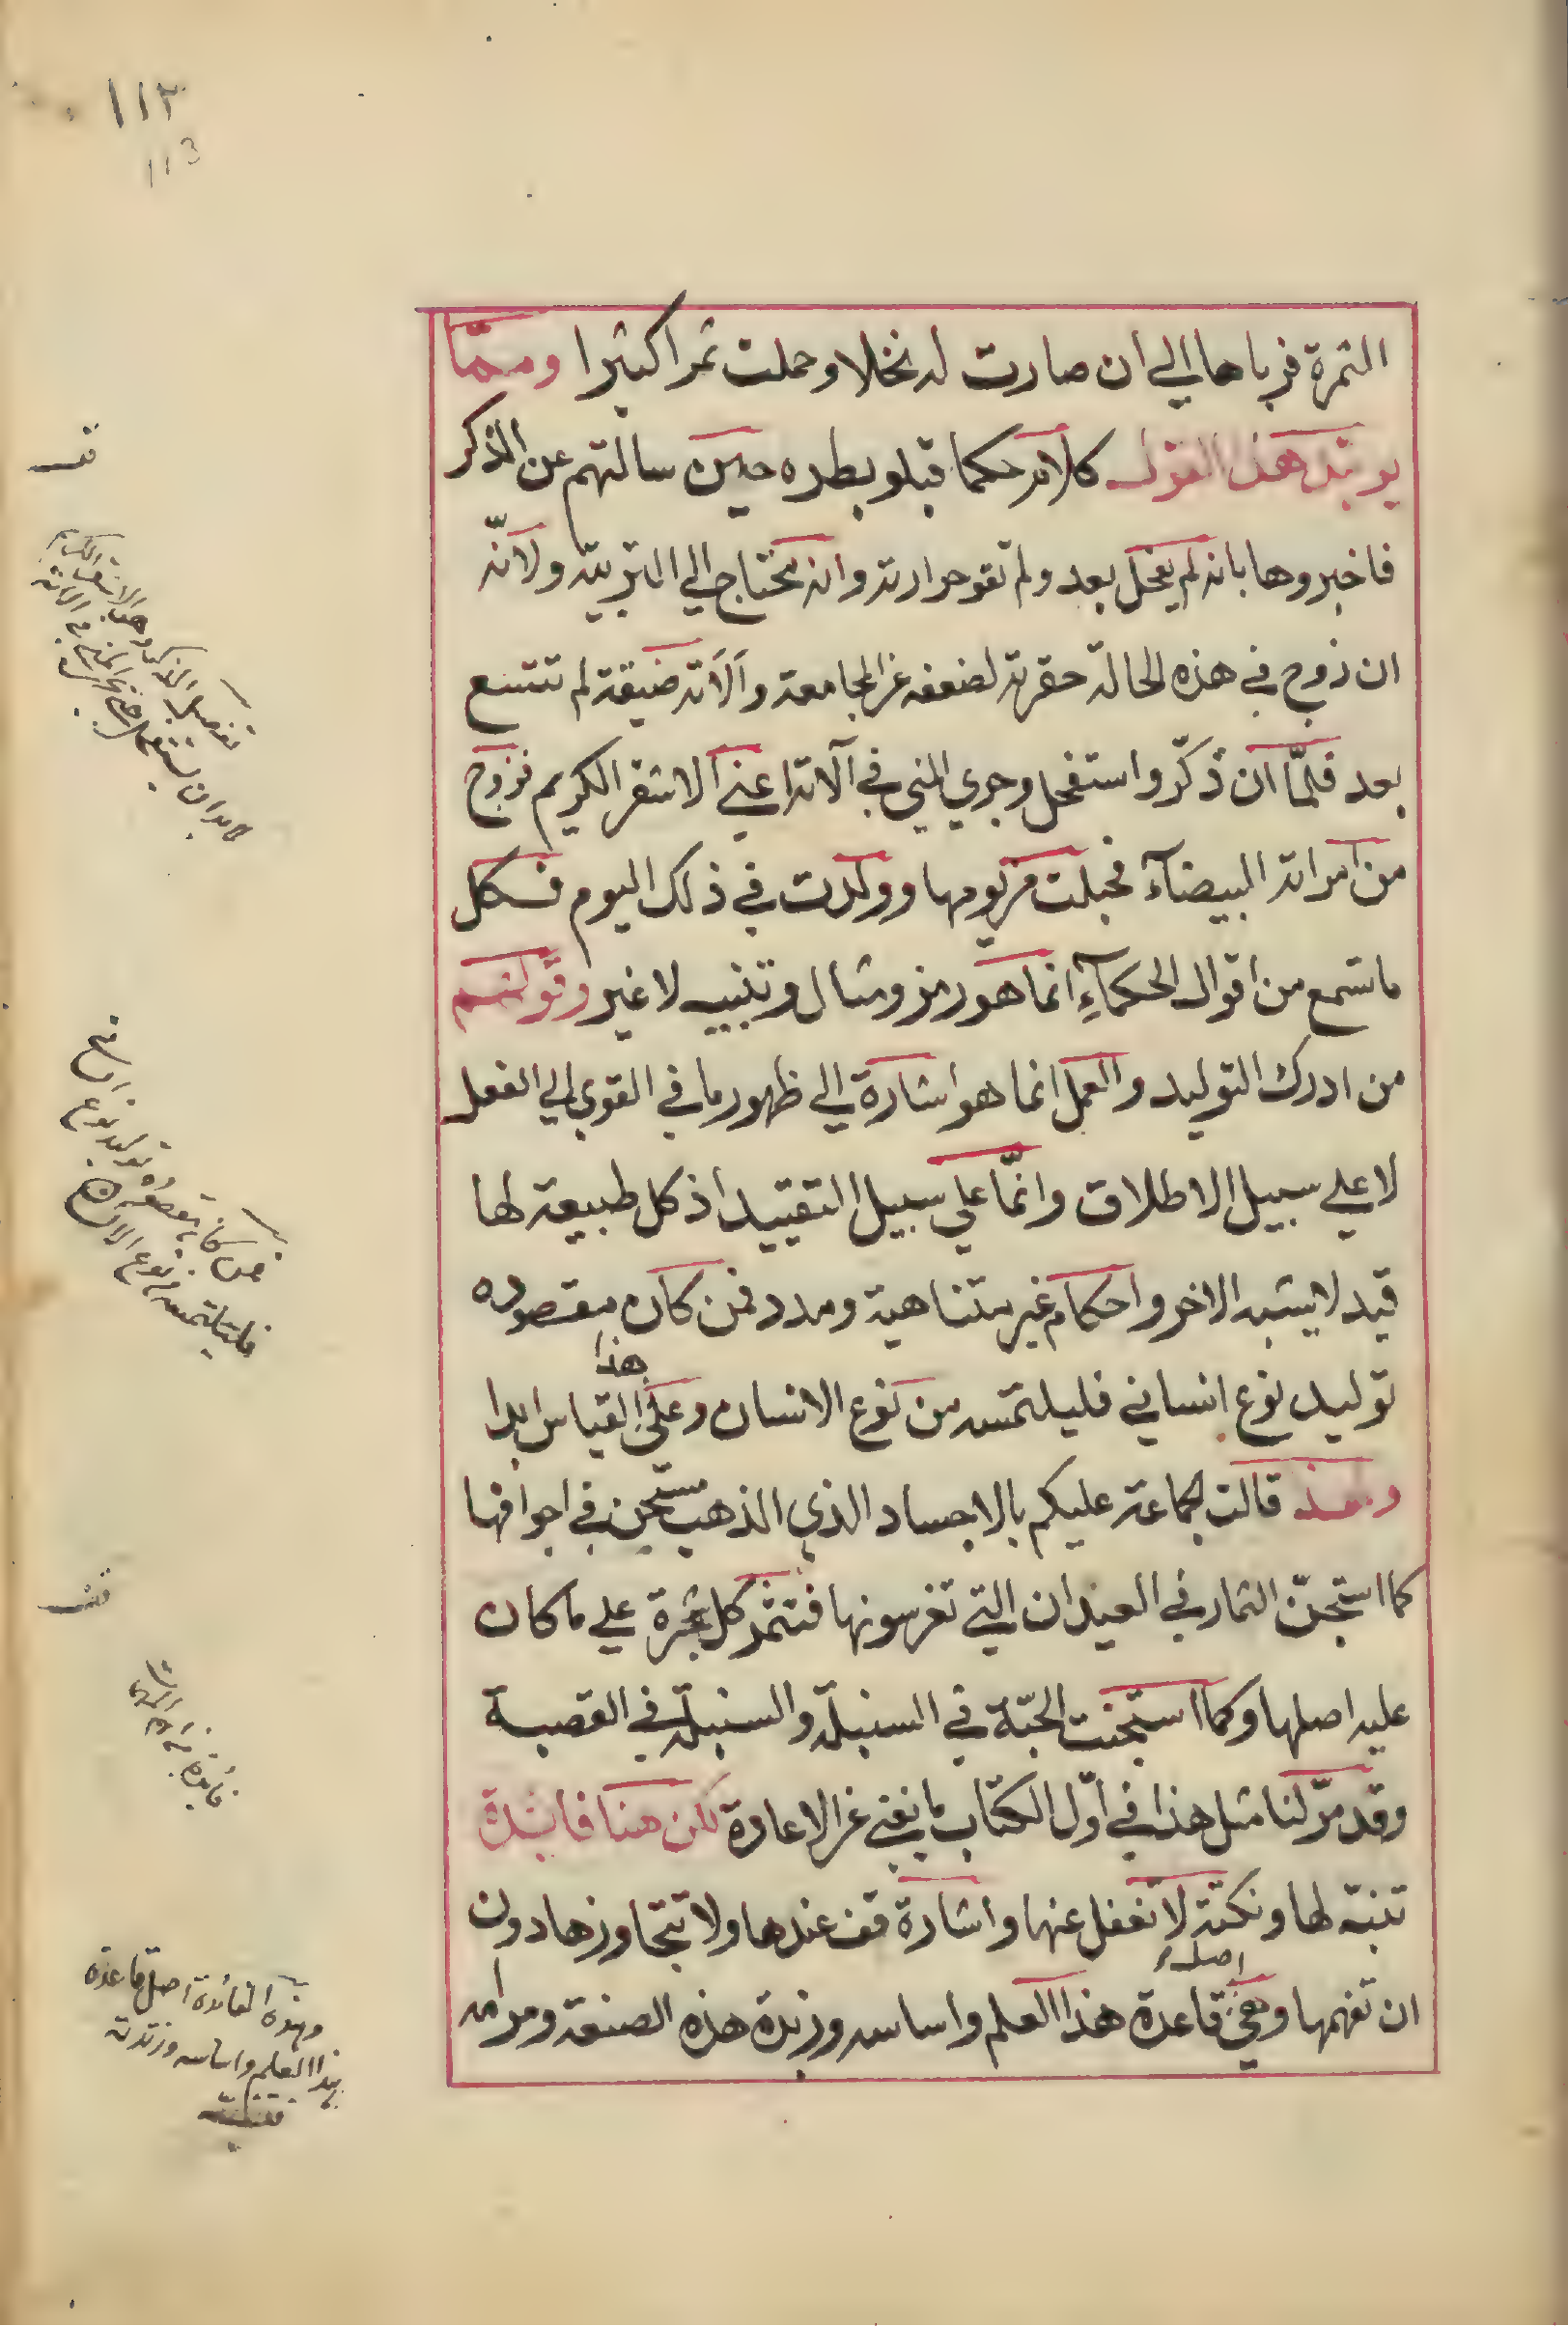 ١١٣
113
الثمرة فرباها الي ان صارت له نخلا وحملت ثمرا كثيرا ومما
يويد هذا القول كلام حكما قبلوبطره حين سالتهم عن الذكر
فاخبروها بانه لم يفحل بعد ولم تقو حرارته وانه يحتاج الي التربية ولانّه
ان زوج في هذه الحالة حقرته لضعفه عن المجامعة وآلاته ضيقة لم تتسع
بعد فلمّا ان ذكّر واستفحل وجري المني في آلاته اعني الاشقر الكريم فزوج
من امراته البيضآء فحبلت من يومها وولدت في ذلك اليوم فكل
ما تسمع من اقوال الحكمآءِ انما هو رمز ومثال وتنبيه لا غير وقولهم
من ادرك التوليد والعمل انما هو اشارة الي ظهور ما في القوي الي الفعل
لا علي سبيل الاطلاق وانمّا علي سبيل التقييد اذ كل طبيعة لها
قيد لا يشبه الاخر واحكام غير متناهية ومدد فمن كان مقصوده
توليد نوع انساني فليلتمسه من نوع الانسان وعلي هذا القياس ابدا
وبهذا قالت الجماعة عليكم بالاجساد الذي الذهب مستجن في اجوافها
كما استجنّ الثمار في العيدان التي تغرسونها فتثمر كل شجرة علي ما كان
عليه اصلها وكما استجنت الحبّة في السنبلة والسنبلة في القصبة
وقد مرّ لنا مثل هذا في اوّل الكتاب ما يغني عن الاعادة لكن هنا فائدة
تنبّه لها ونكتة لا تغفل عنها واشارة قف عندها ولا تتجاوزها دون
ان تفهمها وهي اصل قاعدة هذا العلم واساسه وزبدة هذه الصنعة ومرامه
قف
فمن كان مقصوده توليد نوع انساني
فليلتمسه من نوع الانسان
قف
وهذه الفائدة اصل قاعدة
هذا العلم واساسه وزبدته